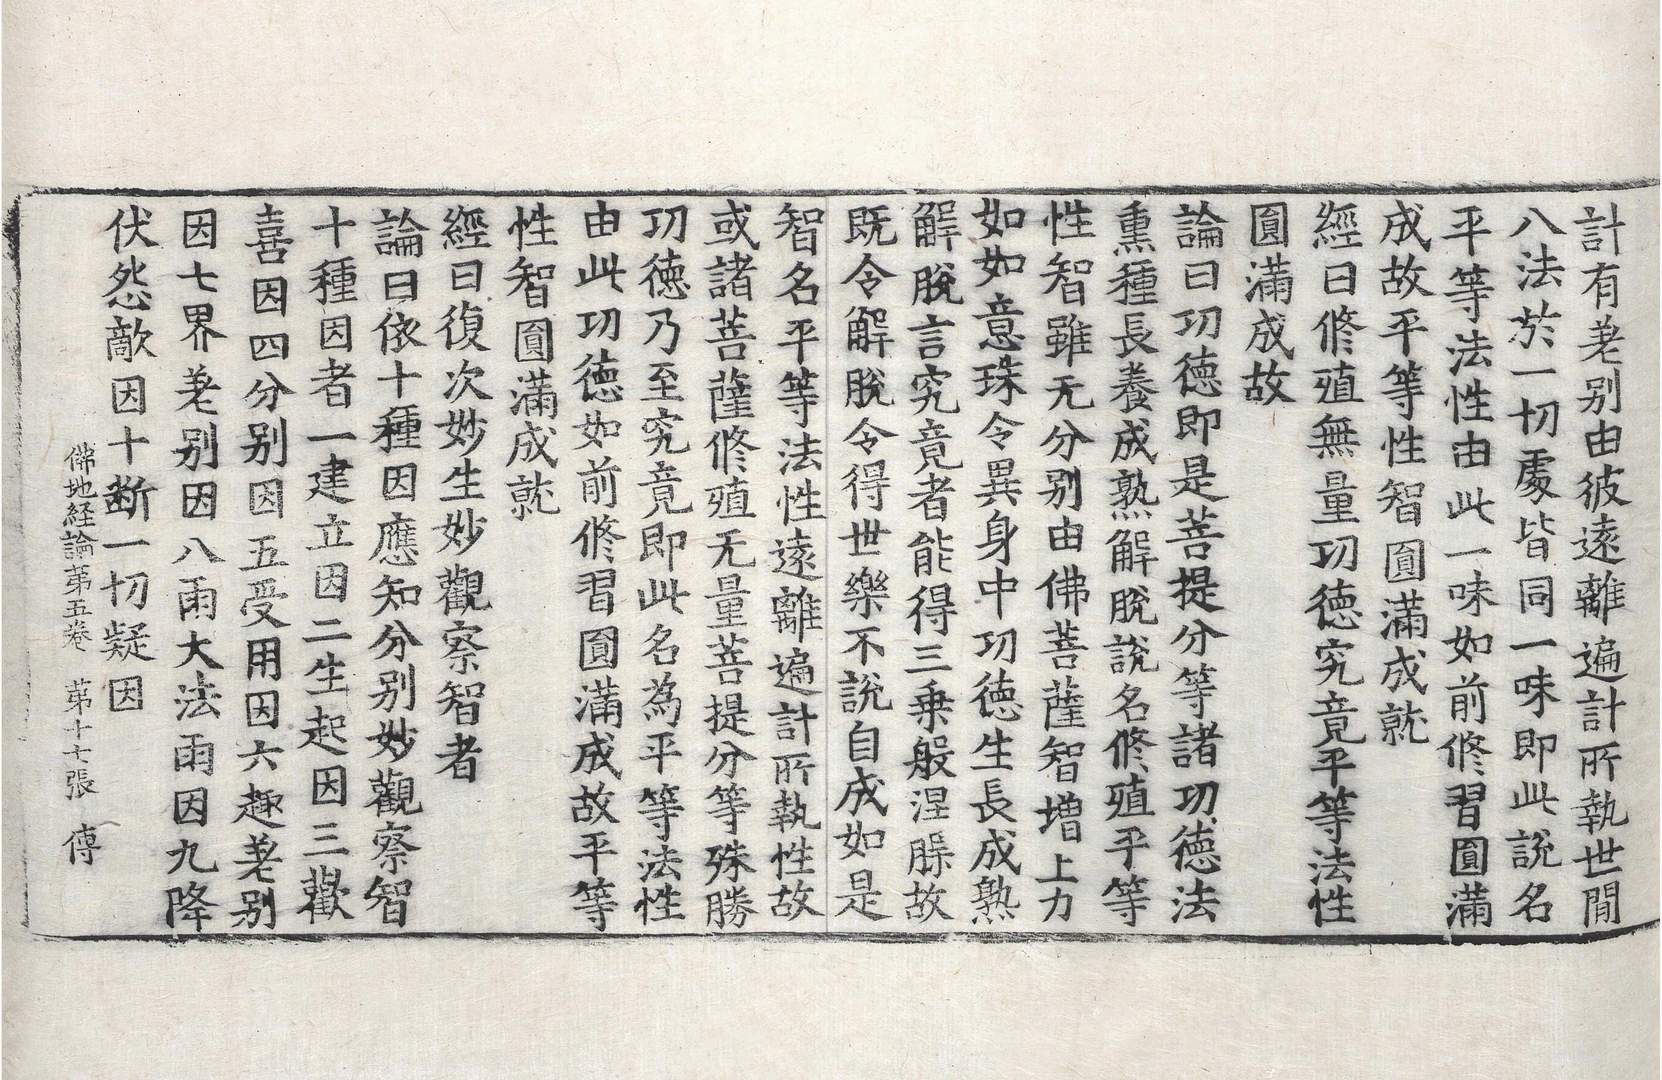 計有差别由彼遠離遍計所執世間
八法於一切處皆同一味即此說名
平等法性由此一味如前修習圓滿
成故平等性智圓滿成就
經曰修殖無量功德究竟平等法性
圓滿成故
論曰功德即是菩提分等諸功德法
熏種長養成熟解脫說名修殖平等
性智雖无分别由佛菩薩智增上力
如如意珠令異身中功德生長成熟
解脫言究竟者能得三乘般涅槃故
既令解脫令得世樂不說自成如是
智名平等法性遠離遍計所執性故
或諸菩薩修殖无量菩提分等殊勝
功德乃至究竟即此名為平等法性
由此功德如前修習圓滿成故平等
性智圓滿成就
經曰復次妙生妙觀察智者
論曰依十種因應知分别妙觀察智
十種因者一建立因二生起因三歡
喜因四分别因五受用因六趣差别
因七界差别因八雨大法雨因九降
伏怨敵因十断一切疑因
佛地経論第五卷　第十七張　傳